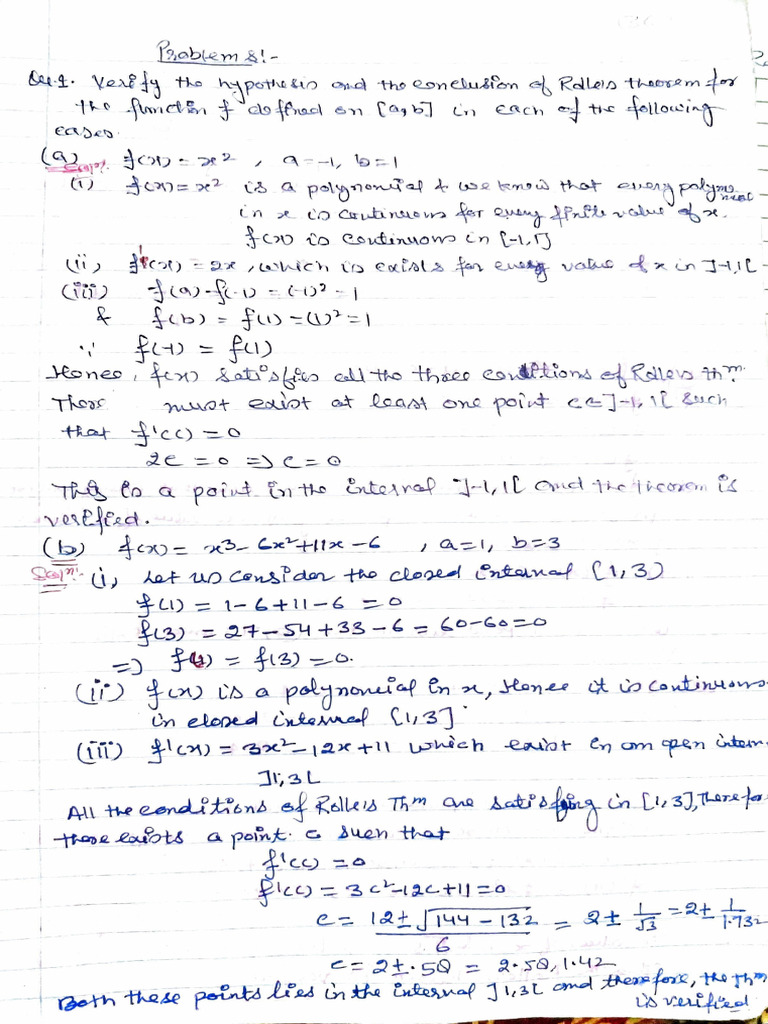 Problems:-
Qu.1. Verify the hypothesis and the conclusion of Rolle's theorem for
the function f defined on [a,b] in each of the following
cases.
(a) f(x) = x², a=-1, b=1
Solⁿ:-
(i) f(x) = x² is a polynomial & we know that every polynomial
in x is continuous for every finite value of x.
f(x) is continuous in [-1,1]
(ii) f'(x) = 2x, which is exists for every value of x in ]-1,1[
(iii) f(a)-f(-1) = (-1)² = 1
& f(b) = f(1) = (1)² = 1
∵ f(-1) = f(1)
Hence, f(x) satisfies all the three conditions of Rolle's thm.
There must exist at least one point c∈]-1,1[ such
that f'(c) = 0
2c = 0 => c = 0
This is a point in the interval ]-1,1[ and the theorem is
verified.
(b) f(x) = x³-6x²+11x-6 , a=1, b=3
Solⁿ:- (i) Let us consider the closed interval [1,3]
f(1) = 1-6+11-6 = 0
f(3) = 27-54+33-6 = 60-60=0
=> f(1) = f(3) = 0.
(ii) f(x) is a polynomial in x, Hence it is continuous
in closed interval [1,3].
(iii) f'(x) = 3x²-12x+11 which exist in an open interv
]1,3[
All the conditions of Rolle's Thm are satisfying in [1,3], Therefor
there exists a point c such that
f'(c) = 0
f'(c) = 3c²-12c+11=0
c = 12±√144-132 / 6 = 2± 1/√3 = 2± 1/1.732
c = 2±.58 = 2.58, 1.42
Both these points lies in the interval ]1,3[ and therefore, the Thm
is verified